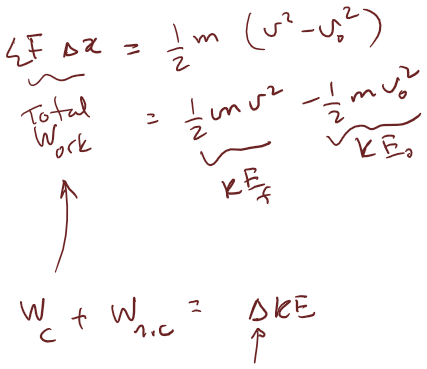 ΣF Δx = 1/2 m (v² - v₀²)
Total Work = 1/2 m v² - 1/2 m v₀²
KE_f KE₀
W_c + W_n.c = ΔKE